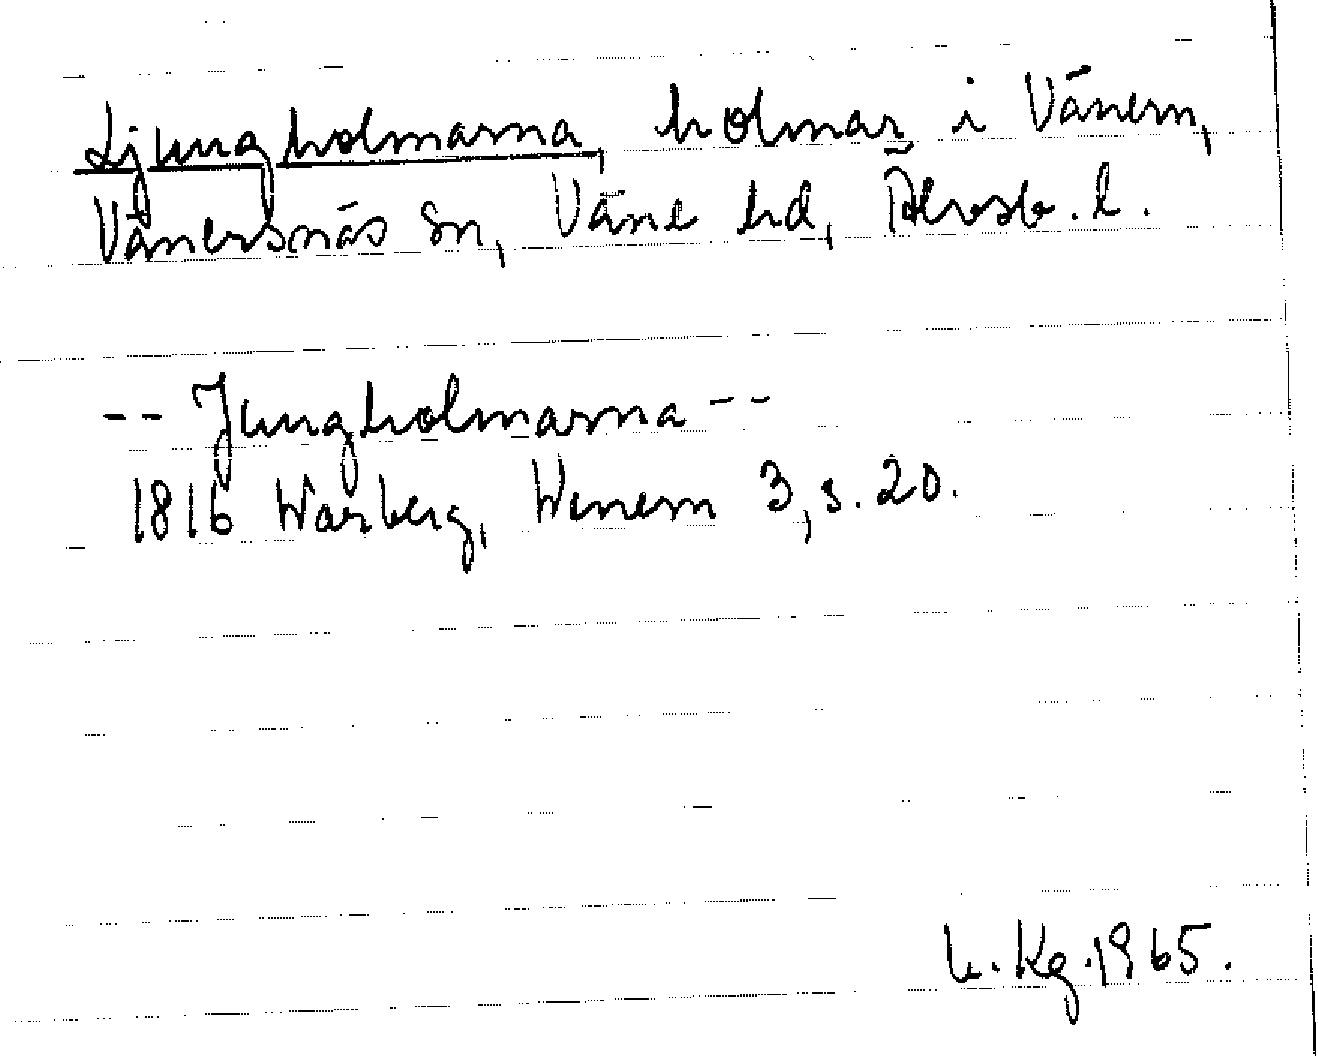 Ljungholmarna, holmar i Vänern,
Vänersnäs sn, Väne hd, Älvsb. l.
-- Jungholmarna --
1816 Warberg, Wenern 3, s. 20.
Kg. 1965.